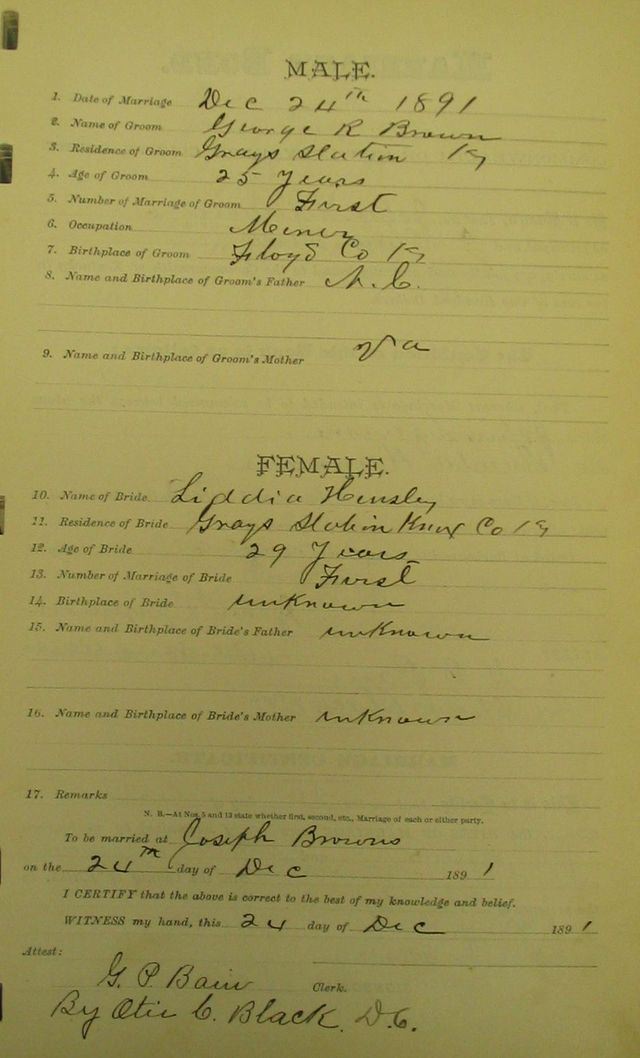 MALE.
1. Date of Marriage Dec 24th 1891
2. Name of Groom George R Brown
3. Residence of Groom Grays Station Ky
4. Age of Groom 25 Years
5. Number of Marriage of Groom First
6. Occupation Miner
7. Birthplace of Groom Floyd Co Ky
8. Name and Birthplace of Groom's Father N.C.
9. Name and Birthplace of Groom's Mother Va
FEMALE.
10. Name of Bride Liddia Hensley
11. Residence of Bride Grays Station Knox Co Ky
12. Age of Bride 29 Years
13. Number of Marriage of Bride First
14. Birthplace of Bride unknown
15. Name and Birthplace of Bride's Father unknown
16. Name and Birthplace of Bride's Mother unknown
17. Remarks
N. B.—At Nos. 5 and 13 state whether first, second, etc., Marriage of each or either party.
To be married at Joseph Browns
on the 24th day of Dec 1891
I CERTIFY that the above is correct to the best of my knowledge and belief.
WITNESS my hand, this 24 day of Dec 1891
Attest:
G. P. Bain Clerk.
By Otis C. Black. D.C.